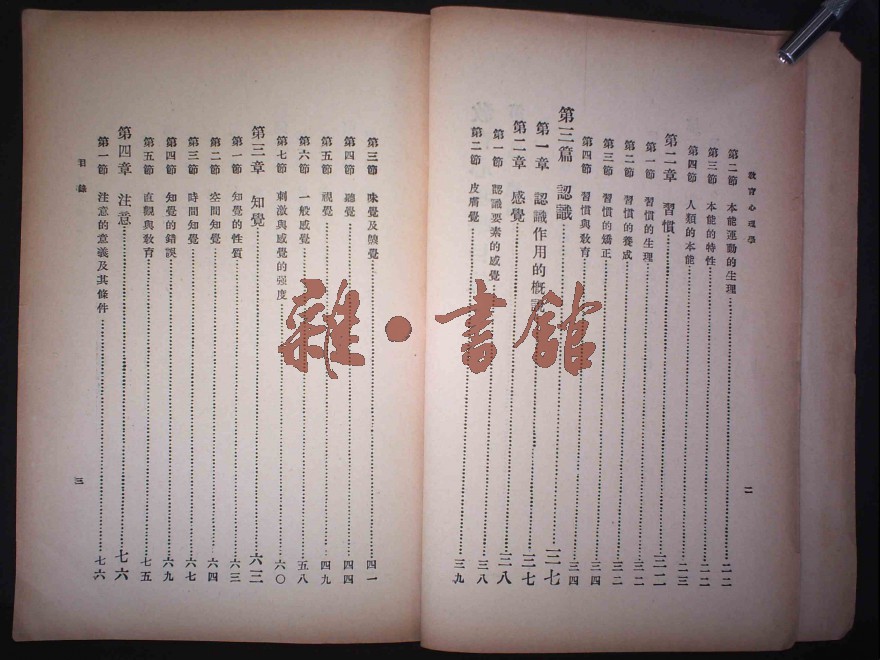 教育心理學
二
第二節 本能運動的生理……二二
第三節 本能的特性……二二
第四節 人類的本能……二三
第二章 習慣……三二
第一節 習慣的生理……三二
第二節 習慣的養成……三二
第三節 習慣的矯正……三四
第四節 習慣與教育……三四
第三篇 認識……三七
第一章 認識作用的概說……三七
第二章 感覺……三八
第一節 認識要素的感覺……三八
第二節 皮膚覺……三九
第三節 味覺及嗅覺……四一
第四節 聽覺……四四
第五節 視覺……四九
第六節 一般感覺……五八
第七節 刺激與感覺的强度……六〇
第三章 知覺……六三
第一節 知覺的性質……六三
第二節 空間知覺……六四
第三節 時間知覺……六七
第四節 知覺的錯誤……六九
第五節 直觀與教育……七五
第四章 注意……七六
第一節 注意的意義及其條件……七六
目錄
三
雜·書館